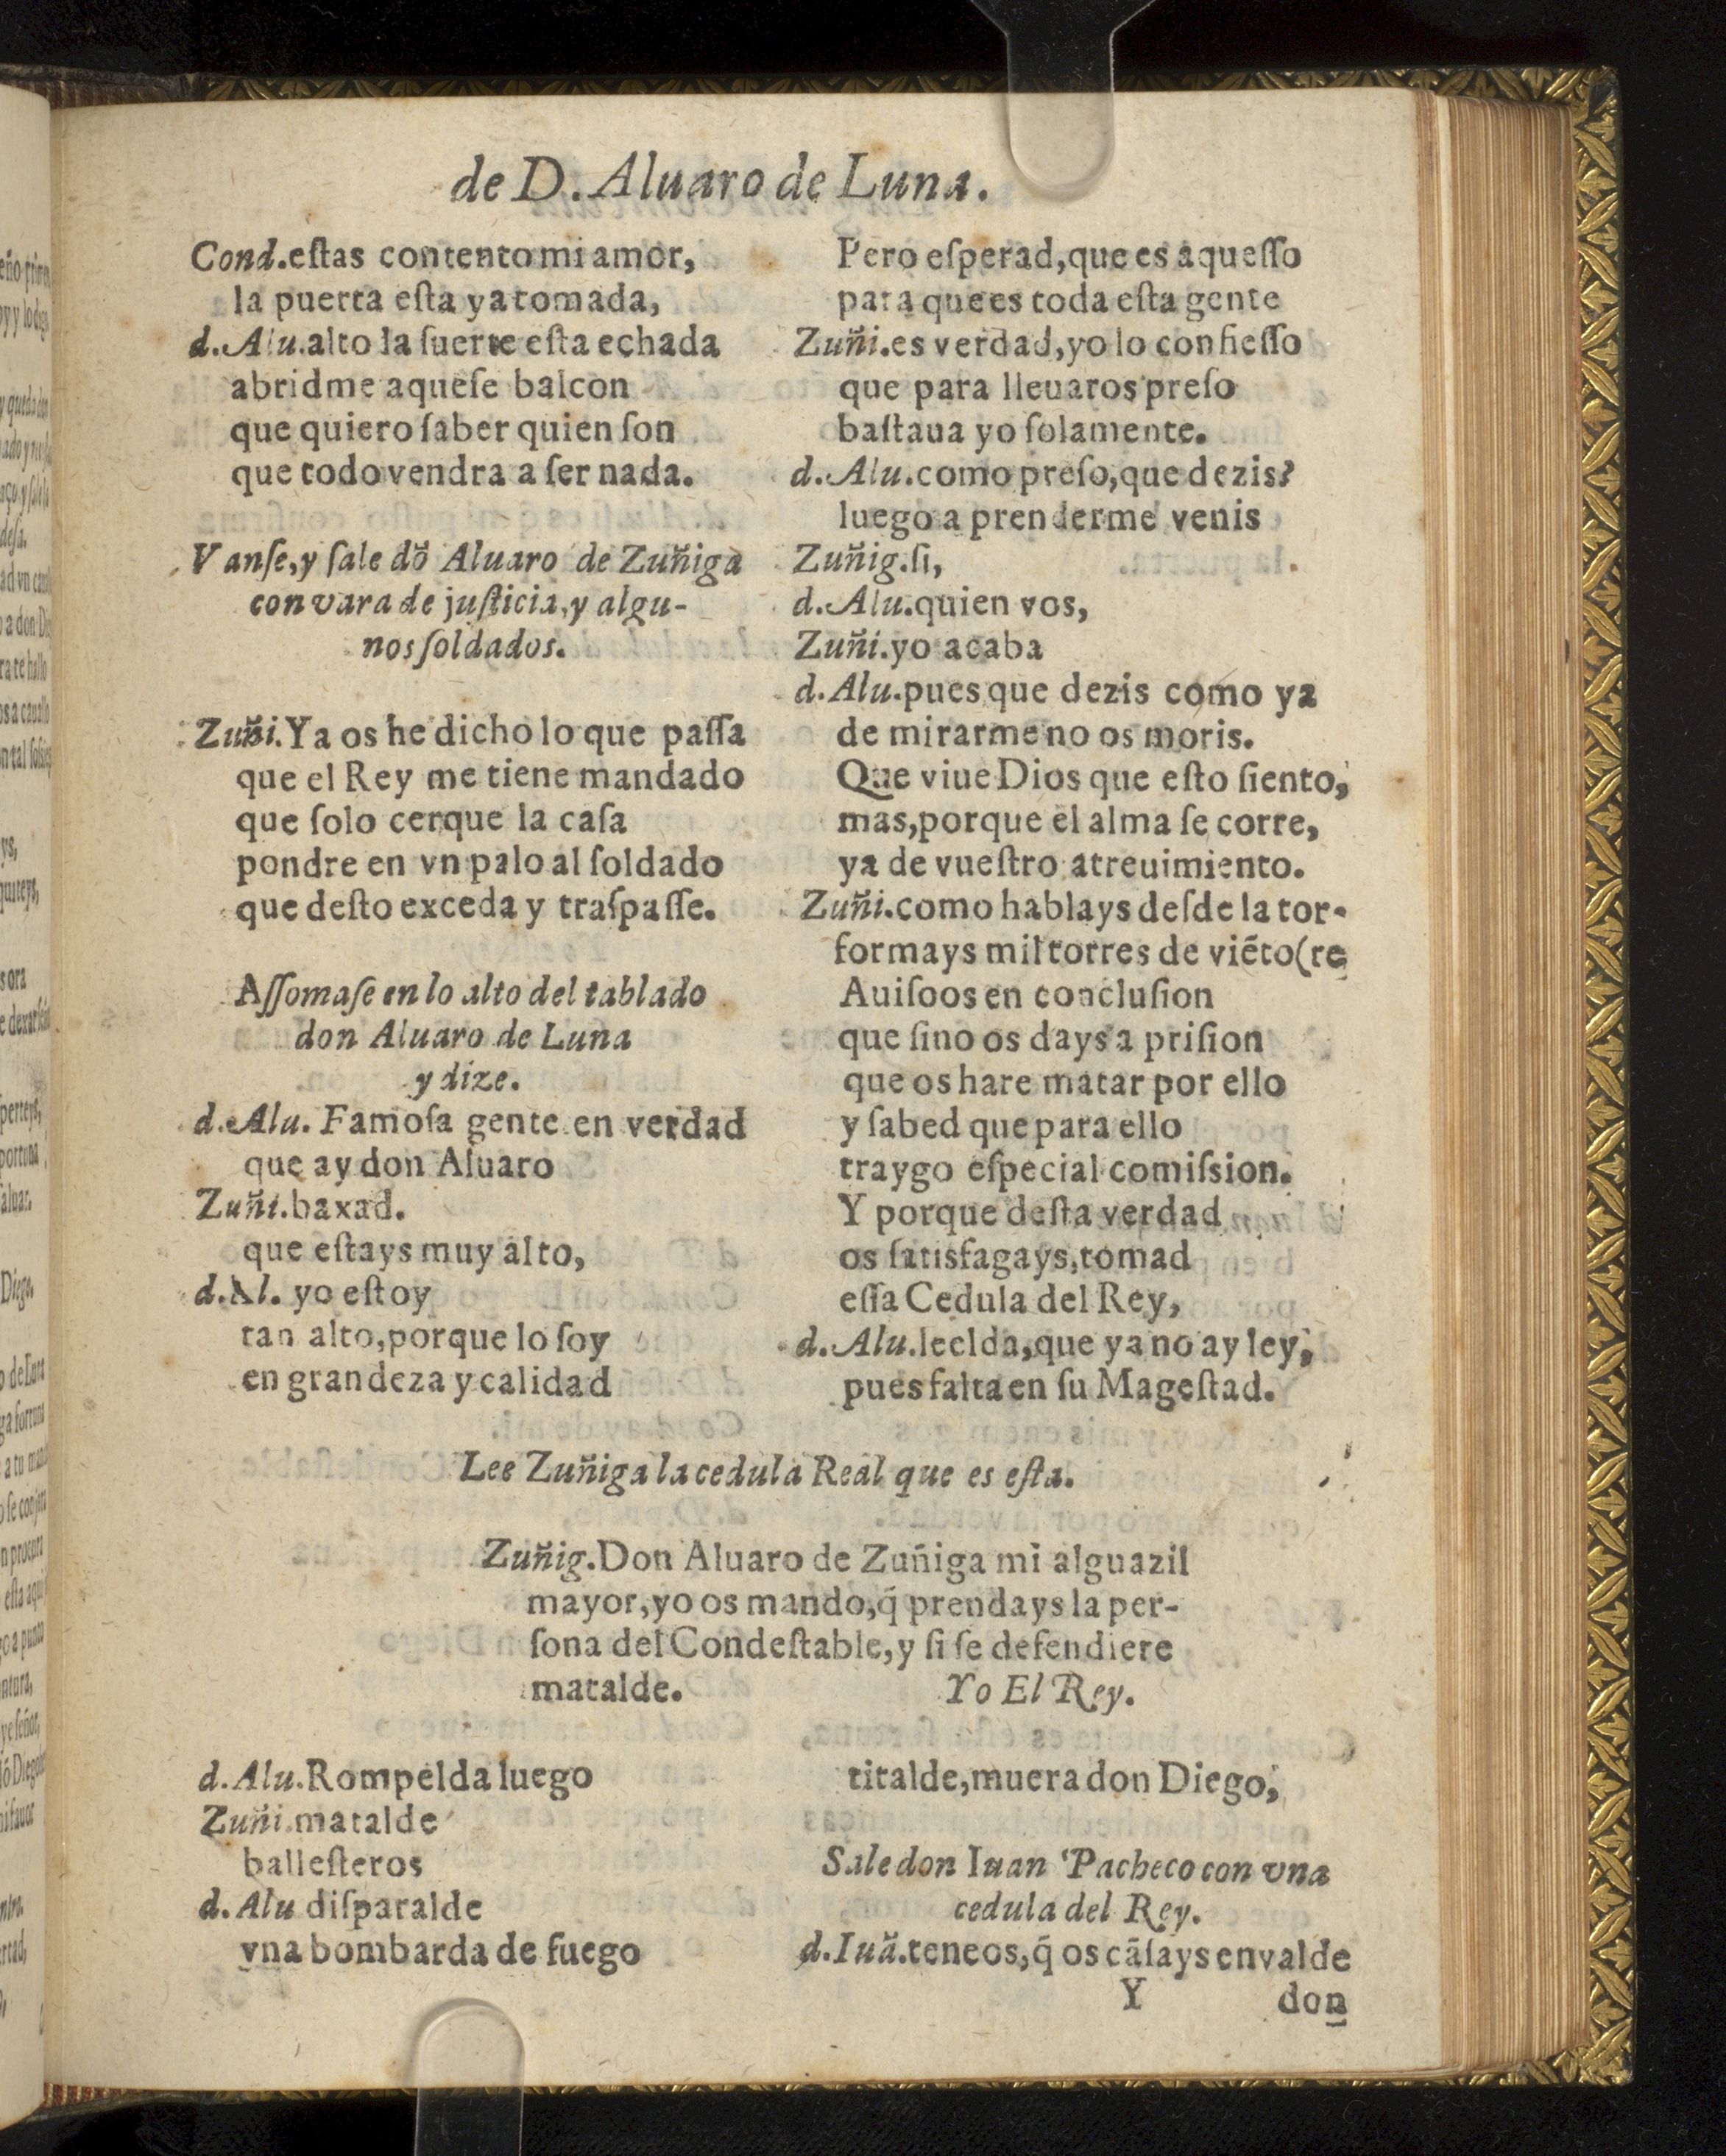 de D. Aluaro de Luna.
Cond.eſtas contento mi amor,
la puerta eſta ya tomada,
d.Alu.alto la ſuerte eſta echada
abridme aqueſe balcon
que quiero ſaber quien ſon
que todo vendra a ſer nada.
Vanſe,y ſale dõ Aluaro de Zuñiga
con vara de juſticia,y algu-
nos ſoldados.
Zuñi.Ya os he dicho lo que paſſa
que el Rey me tiene mandado
que ſolo cerque la caſa
pondre en vn palo al ſoldado
que deſto exceda y traſpaſſe.
Aſſomaſe en lo alto del tablado
don Aluaro de Luna
y dize.
d.Alu. Famoſa gente en verdad
que ay don Aluaro
Zuñi.baxad.
que eſtays muy alto,
d.Al. yo eſtoy
tan alto,porque lo ſoy
en grandeza y calidad
Pero eſperad,que es aqueſſo
para que es toda eſta gente
Zuñi.es verdad,yo lo confieſſo
que para lleuaros preſo
baſtaua yo ſolamente.
d.Alu.como preſo,que dezis?
luego a prenderme venis
Zuñig.ſi,
d.Alu.quien vos,
Zuñi.yo acaba
d.Alu.pues que dezis como ya
de mirarme no os moris.
Que viue Dios que eſto ſiento,
mas,porque el alma ſe corre,
ya de vueſtro atreuimiento.
Zuñi.como hablays deſde la tor-
formays mil torres de viẽto(re
Auiſoos en concluſion
que ſino os days a priſion
que os hare matar por ello
y ſabed que para ello
traygo eſpecial comiſsion.
Y porque deſta verdad
os ſatisfagays,tomad
eſſa Cedula del Rey,
d.Alu.leclda,que ya no ay ley,
pues falta en ſu Mageſtad.
Lee Zuñiga la cedula Real que es eſta.
Zuñig.Don Aluaro de Zuñiga mi alguazil
mayor,yo os mando,q̃ prendays la per-
ſona del Condeſtable,y ſi ſe defendiere
matalde. Yo El Rey.
d.Alu.Rompelda luego
Zuñi.matalde
balleſteros
d.Alu diſparalde
vna bombarda de fuego
titalde,muera don Diego,
Sale don Iuan Pacheco con vna
cedula del Rey.
d.Iuã.teneos,q̃ os cãſays envalde
Y don